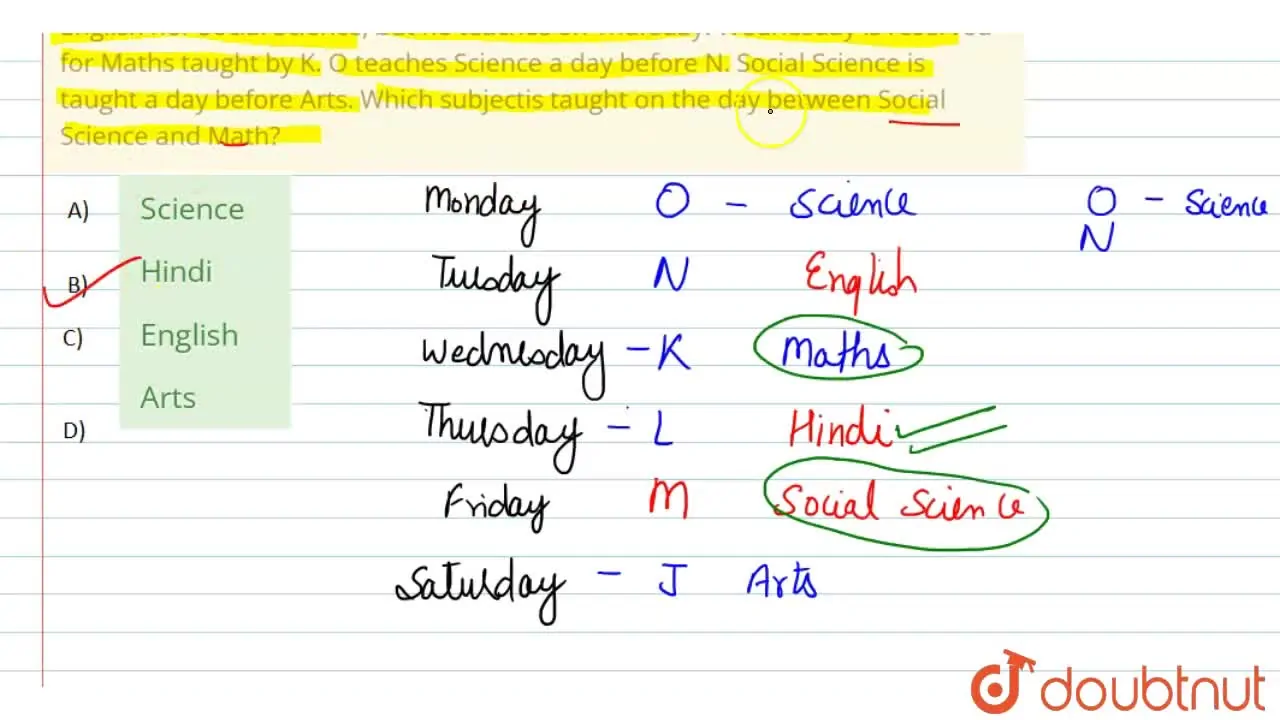 English nor Social Science, but he teaches on Thursday. Wednesday is reserved
for Maths taught by K. O teaches Science a day before N. Social Science is
taught a day before Arts. Which subjectis taught on the day between Social
Science and Math?
A) Science
B) Hindi
C) English
D) Arts
Monday O - Science
Tuesday N English
Wednesday - K Maths
Thursday - L Hindi
Friday M Social Science
Saturday - J Arts
O - Science
N
doubtnut